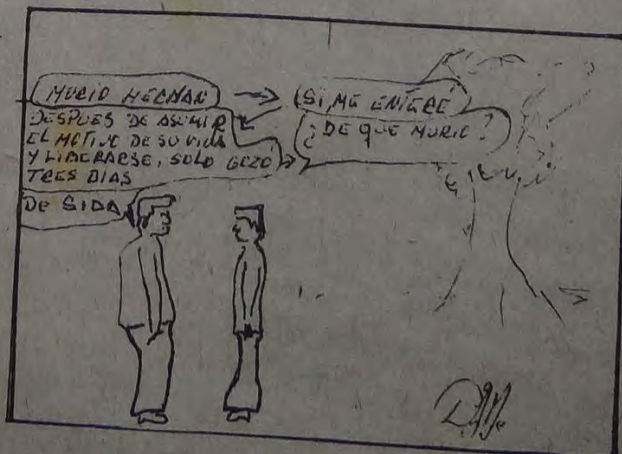 MURIO HERNAN
SI, ME ENTERÉ
DESPUES DE ASUMIR
EL MOTIVO DE SU VIDA
Y LIBERARSE, SOLO GOZÓ
TRES DIAS
¿DE QUE MURIO?
DE SIDA